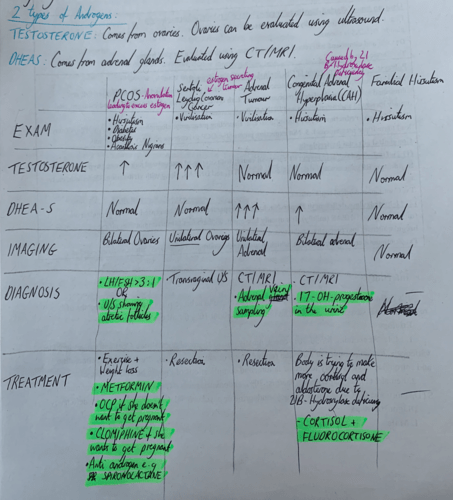 2 types of Androgens:
TESTOSTERONE: Comes from ovaries. Ovaries can be evaluated using ultrasound.
DHEAS: Comes from adrenal glands. Evaluated using CT/MRI.
Caused by 21
B-Hydroxylase
PCOS- Anovulation
leading to excess estrogen
Sertoli
Leydig Ovarian
Cancer
estrogen secreting
tumour
Adrenal
Tumour
Congenital Adrenal
Hyperplasia (CAH)
Familial Hirsutism
EXAM
• Hirsutism
• Diabetes
• Obesity
• Acanthosis Nigrans
• Virilisation
• Virilisation
• Hirsutism
• Hirsutism
TESTOSTERONE ↑ ↑↑↑ Normal Normal Normal
DHEA-S Normal Normal ↑↑↑ ↑ Normal
IMAGING Bilateral Ovaries Unilateral Ovaries Unilateral
Adrenal Bilateral adrenal Normal
DIAGNOSIS
• LH/FSH > 3:1
OR
• U/S showing
atretic follicles
Transvaginal U/S
CT/MRI
• Adrenal Vein
sampling
- CT/MRI
• 17-OH-progesterone
in the urine
TREATMENT
• Exercise +
Weight loss
• METFORMIN
• OCP if she doesn't
want to get pregnant
• CLOMIPHINE if she
wants to get pregnant
• Anti androgen e.g
• Resection
• Resection
Body is trying to make
more cortisol and
aldosterone due to
21B-Hydroxylase deficiency
- CORTISOL +
FLUOROCORTISONE